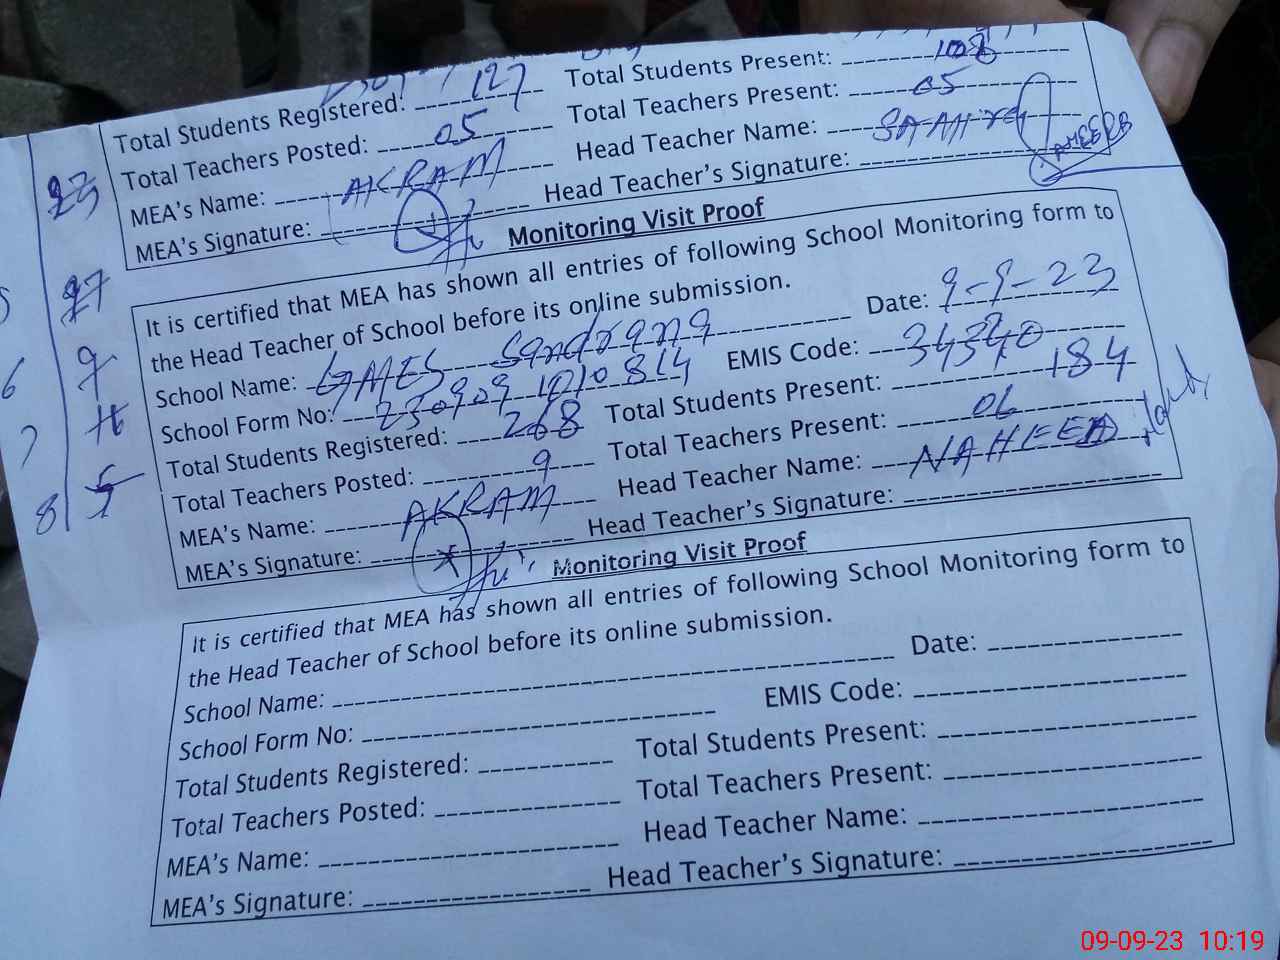 Total Students Registered: 127 Total Students Present: 108
Total Teachers Posted: 05 Total Teachers Present: 05
MEA's Name: AKRAM Head Teacher Name:
MEA's Signature: Head Teacher's Signature:
Monitoring Visit Proof
It is certified that MEA has shown all entries of following School Monitoring form to
the Head Teacher of School before its online submission.
School Name: GMES Sandrana Date: 9-9-23
School Form No: 230909 1010814 EMIS Code:
Total Students Registered: 268 Total Students Present: 184
Total Teachers Posted: 9 Total Teachers Present: 06
MEA's Name: AKRAM Head Teacher Name: NAHEED
MEA's Signature: Head Teacher's Signature:
Monitoring Visit Proof
It is certified that MEA has shown all entries of following School Monitoring form to
the Head Teacher of School before its online submission.
School Name: Date:
School Form No: EMIS Code:
Total Students Registered: Total Students Present:
Total Teachers Posted: Total Teachers Present:
MEA's Name: Head Teacher Name:
MEA's Signature: Head Teacher's Signature:
6 9
7
8 5
09-09-23 10:19